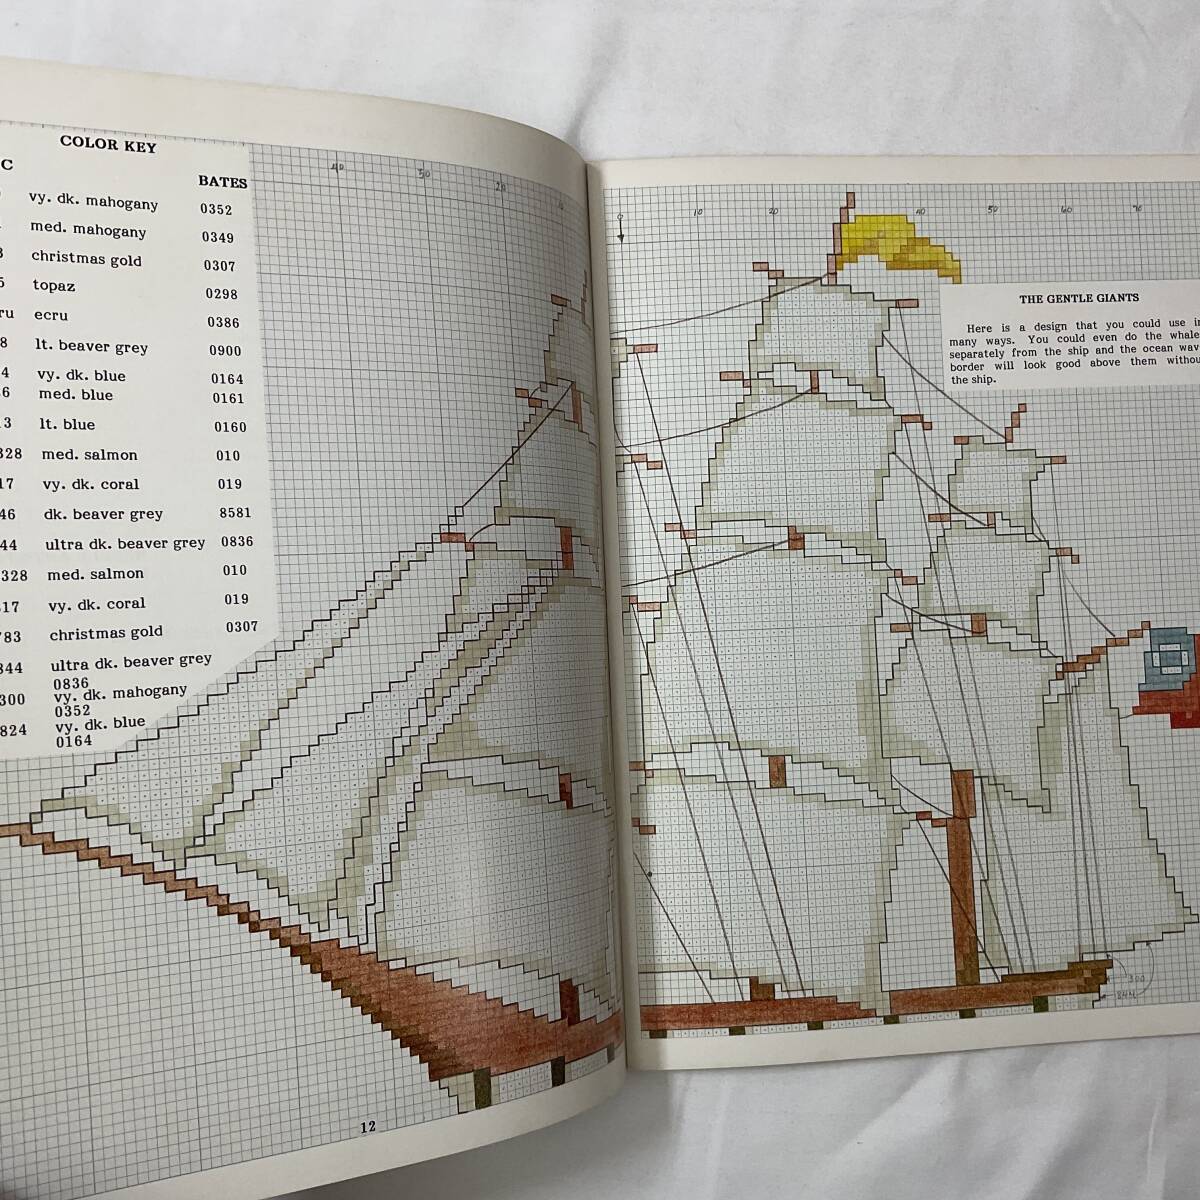 COLOR KEY
C BATES
vy. dk. mahogany 0352
med. mahogany 0349
3 christmas gold 0307
5 topaz 0298
ru ecru 0386
8 lt. beaver grey 0900
4 vy. dk. blue 0164
6 med. blue 0161
13 lt. blue 0160
328 med. salmon 010
17 vy. dk. coral 019
46 dk. beaver grey 8581
44 ultra dk. beaver grey 0836
328 med. salmon 010
17 vy. dk. coral 019
783 christmas gold 0307
844 ultra dk. beaver grey
0836
300 vy. dk. mahogany
0352
824 vy. dk. blue
0164
40 30 20 10
12
0 10 20 40 50 60 70
THE GENTLE GIANTS
Here is a design that you could use in
many ways. You could even do the whale
separately from the ship and the ocean wav
border will look good above them withou
the ship.
300
844